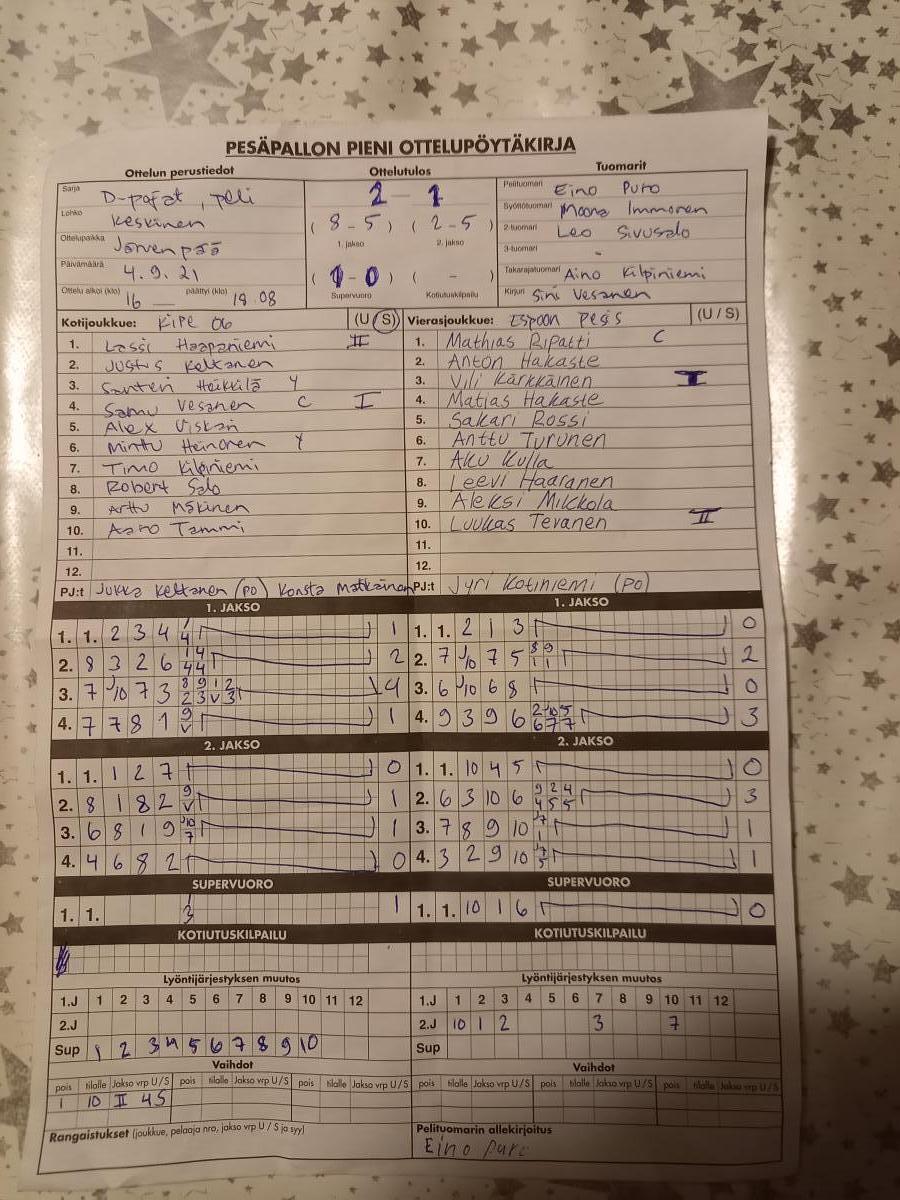 PESÄPALLON PIENI OTTELUPÖYTÄKIRJA
Ottelun perustiedot Ottelutulos Tuomarit
Sarja D-pojat, peli
Lohko Keskinen
Ottelupaikka Järvenpää
Päivämäärä 4.9.21
Ottelu alkoi (klo) 16 päättyi (klo) 18.08
2 - 1
(8-5) (2-5)
1. jakso 2. jakso
(1-0) ( - )
Supervuoro Kotiutuskilpailu
Pelituomari Eino Puro
Syöttötuomari Moona Immonen
2-tuomari Leo Sivusalo
3-tuomari -
Takarajatuomari Aino Kilpiniemi
Kirjuri Sini Vesanen
Kotijoukkue: KiPe 06 (U/S)
1. Lassi Haapaniemi II
2. Justus Keltanen
3. Santeri Heikkilä Y
4. Samu Vesanen C I
5. Alex Viskari
6. Minttu Heinonen Y
7. Timo Kilpiniemi
8. Robert Salo
9. Arttu Mäkinen
10. Aaro Tammi
11.
12.
PJ:t Jukka Keltanen (PO) Konsta Matkainen
Vierasjoukkue: Espoon Pesis (U/S)
1. Mathias Ripatti C
2. Anton Hakaste
3. Vili Kärkkäinen I
4. Matias Hakaste
5. Sakari Rossi
6. Anttu Turunen
7. Aku Kulla
8. Leevi Haaranen
9. Aleksi Mikkola
10. Luukas Tevanen II
11.
12.
PJ:t Jyri Kotiniemi (PO)
1. JAKSO
1. 1. 2 3 4 1
2. 8 3 2 6 2
3. 7 J10 7 3 4
4. 7 7 8 1 1
1. JAKSO
1. 1. 2 1 3 0
2. 7 J10 7 5 2
3. 6 J10 6 8 0
4. 9 3 9 6 3
2. JAKSO
1. 1. 1 2 7 0
2. 8 1 8 2 9 V 1
3. 6 8 1 9 J10 7 1
4. 4 6 8 2 0
2. JAKSO
1. 1. 10 4 5 0
2. 6 3 10 6 9 2 4 4 5 5 3
3. 7 8 9 10 J7 1 1
4. 3 2 9 10 J7 5 1
SUPERVUORO
1. 1. 1 3 1
SUPERVUORO
1. 1. 10 1 6 0
KOTIUTUSKILPAILU
KOTIUTUSKILPAILU
Lyöntijärjestyksen muutos
1.J 1 2 3 4 5 6 7 8 9 10 11 12
2.J
Sup 1 2 3 4 5 6 7 8 9 10
Lyöntijärjestyksen muutos
1.J 1 2 3 4 5 6 7 8 9 10 11 12
2.J 10 1 2 3 7
Sup
Vaihdot
pois tilalle Jakso vrp U/S pois tilalle Jakso vrp U/S pois tilalle Jakso vrp U/S
1 10 II 4S
Vaihdot
pois tilalle Jakso vrp U/S pois tilalle Jakso vrp U/S pois tilalle Jakso vrp U/S
Rangaistukset (joukkue, pelaaja nro, jakso vrp U / S ja syy)
Pelituomarin allekirjoitus
Eino Puro